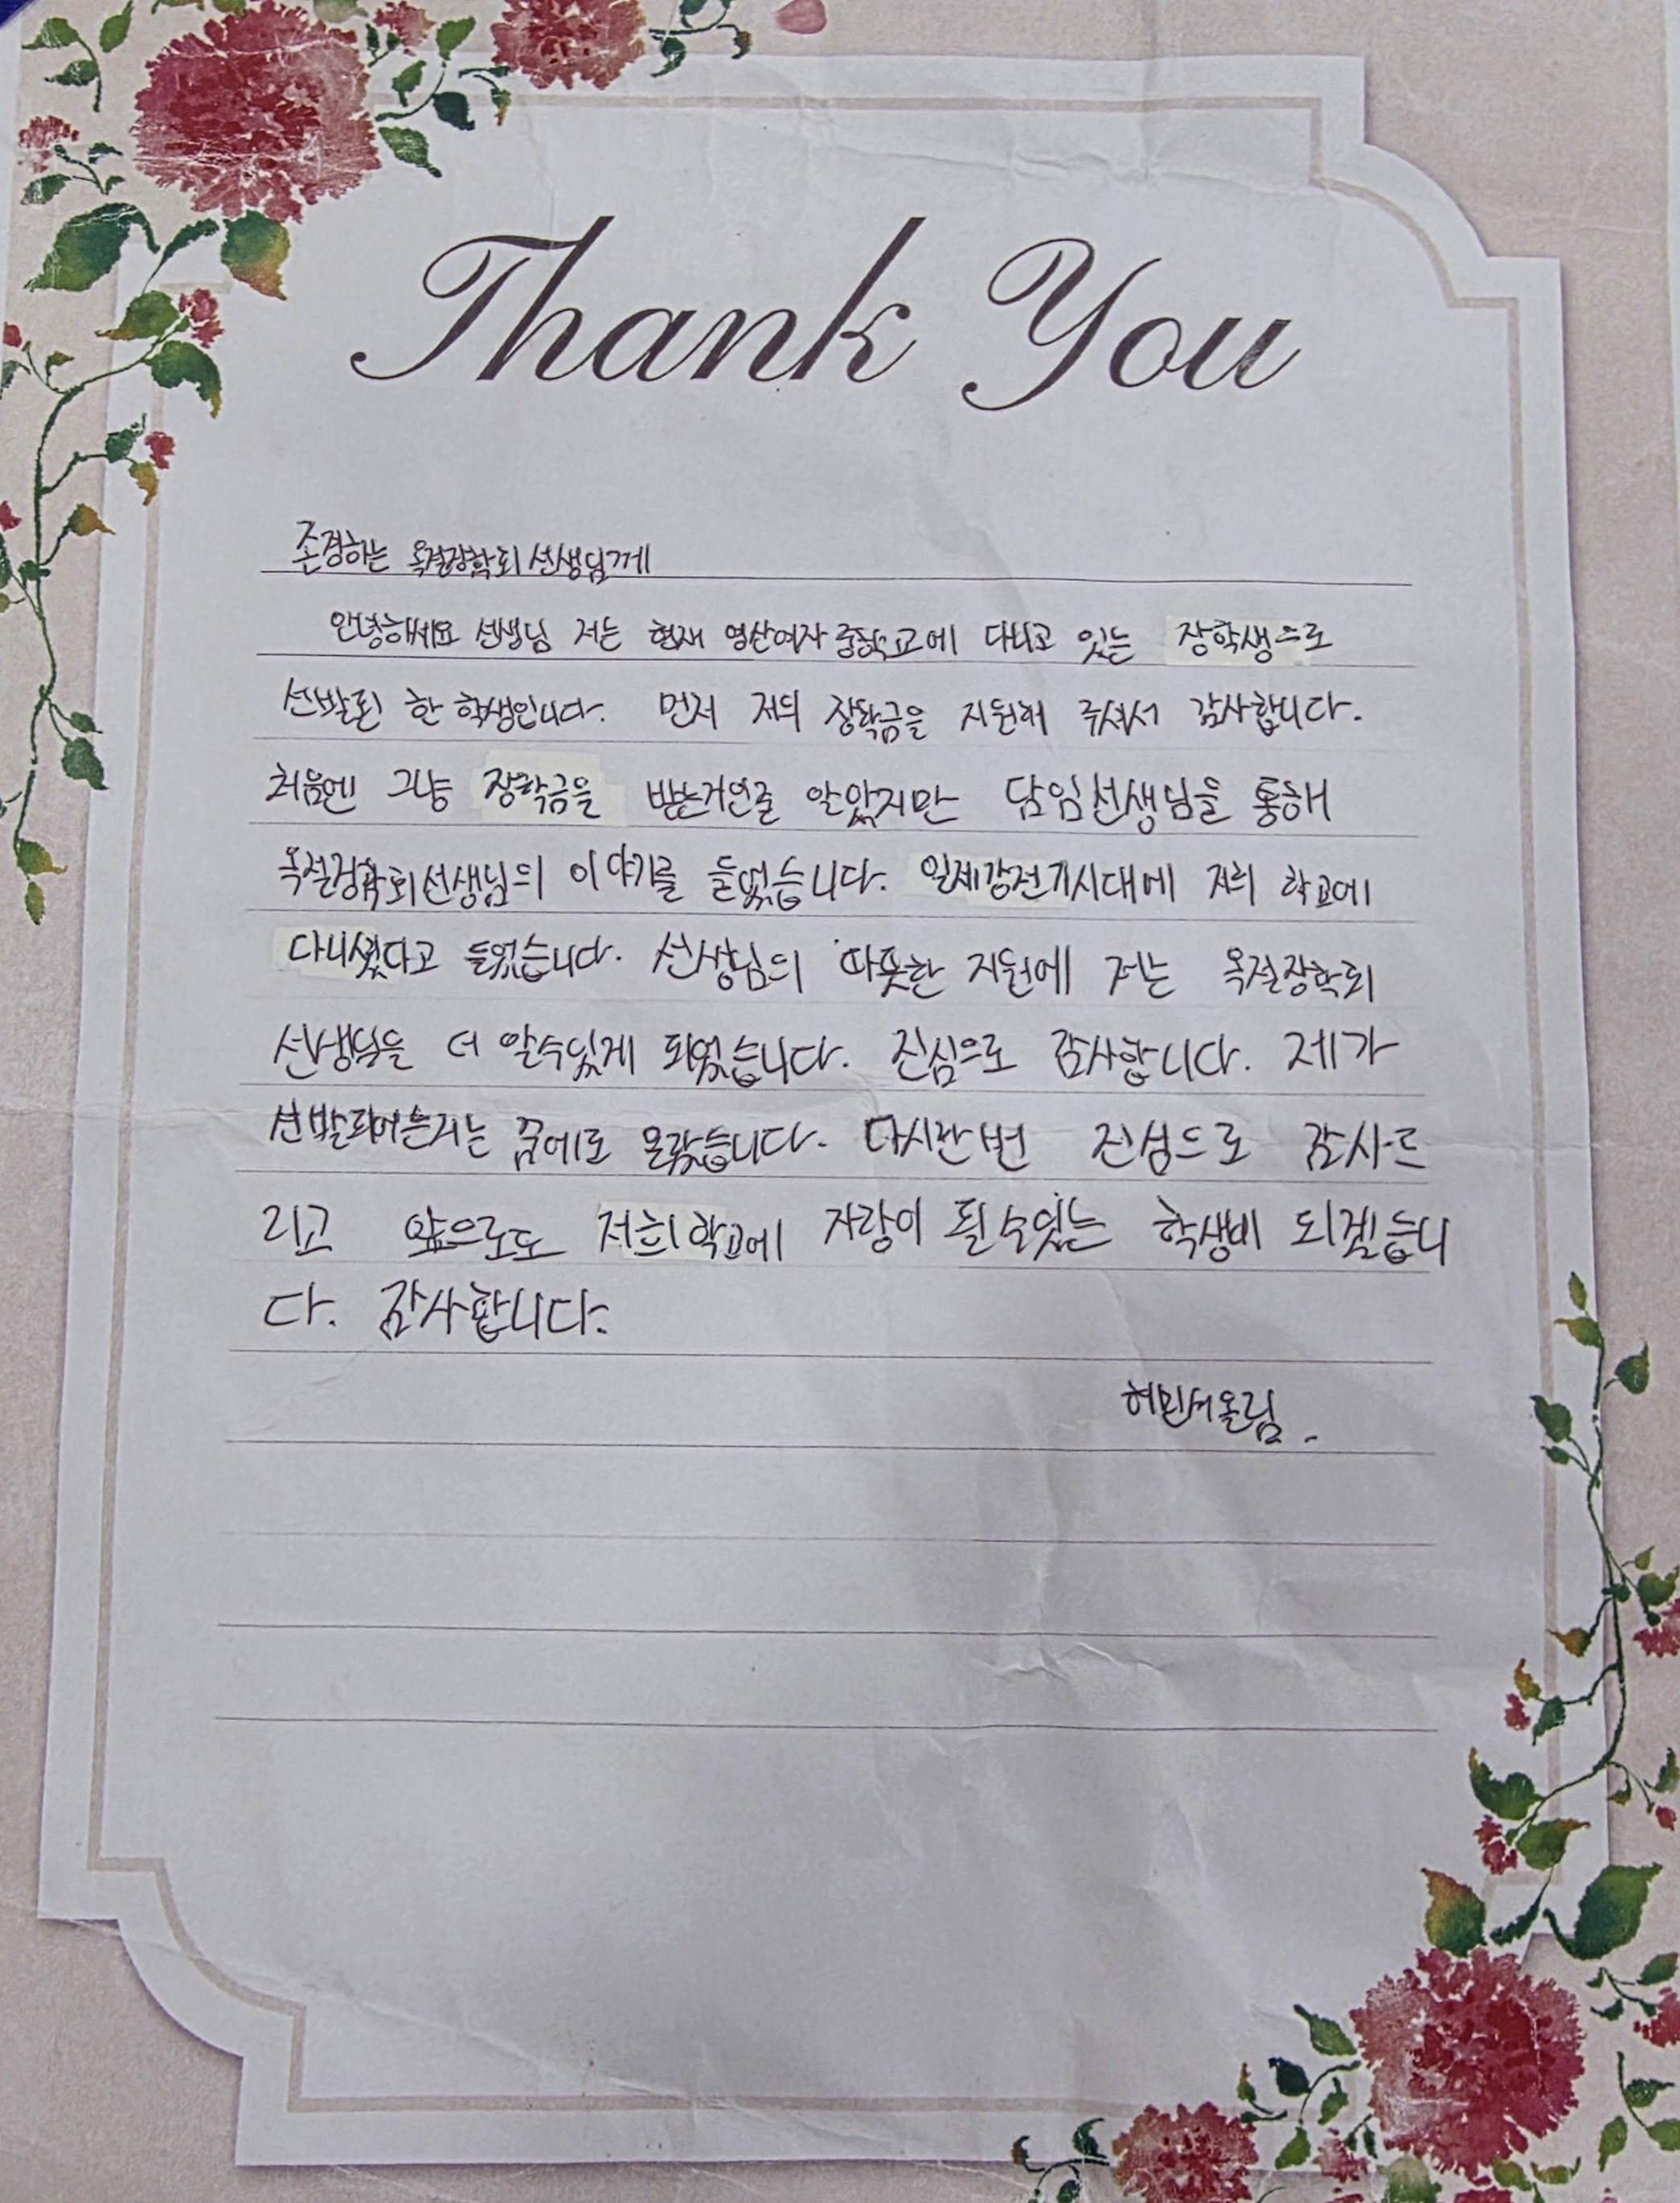 Thank You
존경하는 옥절장학회 선생님께
안녕하세요 선생님 저는 현재 영산여자중학교에 다니고 있는 장학생으로
선발된 한 학생입니다. 먼저 저의 장학금을 지원해 주셔서 감사합니다.
처음엔 그냥 장학금을 받는거인줄 알았지만 담임선생님을 통해
옥절장학회선생님의 이야기를 들었습니다. 일제강점기시대에 저희 학교에
다니셨다고 들었습니다. 선생님의 따뜻한 지원에 저는 옥절장학회
선생님을 더 알수있게 되었습니다. 진심으로 감사합니다. 제가
꿈에도 몰랐습니다. 다시한번 진심으로 감사드
리고 앞으로도 저희학교에 자랑이 될수있는 학생이 되겠습니
다. 감사합니다.
허민서올림.